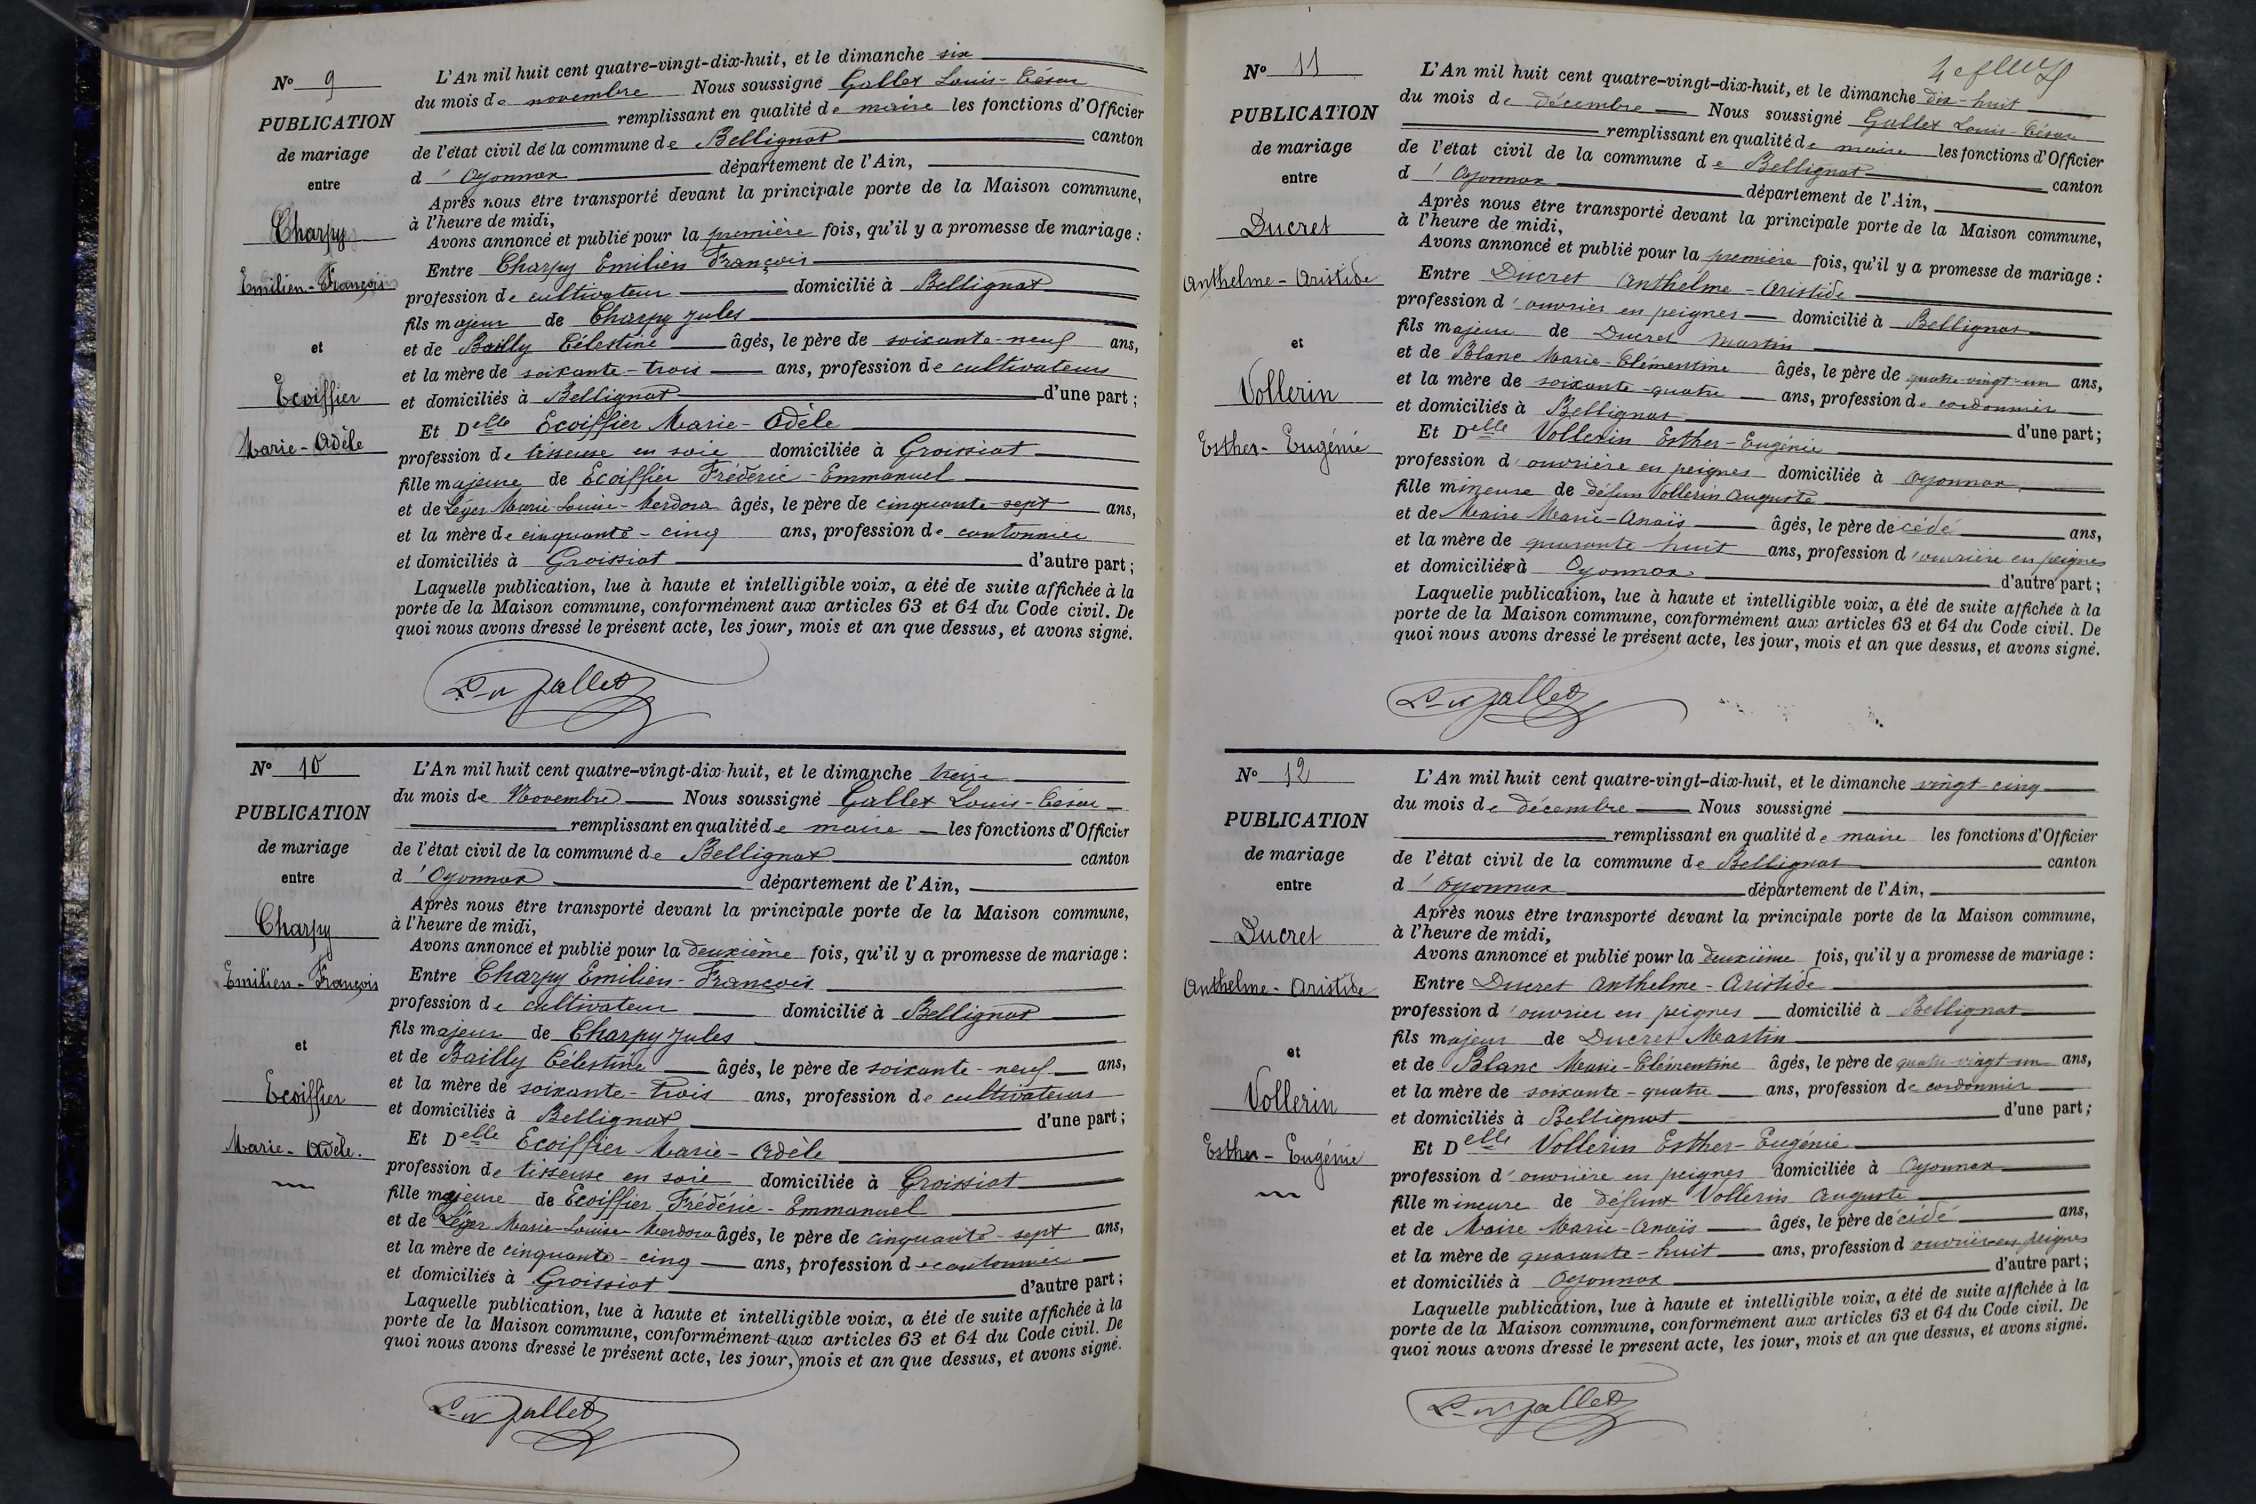 N° 9
PUBLICATION
de mariage
entre
Charpy
Emilien-François
et
Ecoiffier
Marie-Adèle
L'An mil huit cent quatre-vingt-dix-huit, et le dimanche six
du mois de novembre Nous soussigné Gallet Louis-César
remplissant en qualité de maire les fonctions d'Officier
de l'état civil de la commune de Bellignat canton
d'Oyonnax département de l'Ain,
Après nous être transporté devant la principale porte de la Maison commune,
à l'heure de midi,
Avons annoncé et publié pour la première fois, qu'il y a promesse de mariage :
Entre Charpy Emilien François
profession de cultivateur domicilié à Bellignat
fils majeur de Charpy Jules
et de Bailly Célestine âgés, le père de soixante-neuf ans,
et la mère de soixante-trois ans, profession de cultivateurs
et domiciliés à Bellignat d'une part ;
Et Delle Ecoiffier Marie-Adèle
profession de tisseuse en soie domiciliée à Groissiat
fille majeure de Ecoiffier Frédéric-Emmanuel
et de Léger Marie Louise- âgés, le père de cinquante-sept ans,
et la mère de cinquante-cinq ans, profession de cantonnier
et domiciliés à Groissiat d'autre part ;
Laquelle publication, lue à haute et intelligible voix, a été de suite affichée à la
porte de la Maison commune, conformément aux articles 63 et 64 du Code civil. De
quoi nous avons dressé le présent acte, les jour, mois et an que dessus, et avons signé.
Gallet
N° 10
PUBLICATION
de mariage
entre
Charpy
Emilien-François
et
Ecoiffier
Marie-Adèle.
L'An mil huit cent quatre-vingt-dix-huit, et le dimanche treize
du mois de Novembre Nous soussigné Gallet Louis-César
remplissant en qualité de maire les fonctions d'Officier
de l'état civil de la commune de Bellignat canton
d'Oyonnax département de l'Ain,
Après nous être transporté devant la principale porte de la Maison commune,
à l'heure de midi,
Avons annoncé et publié pour la deuxième fois, qu'il y a promesse de mariage :
Entre Charpy Emilien-François
profession de cultivateur domicilié à Bellignat
fils majeur de Charpy Jules
et de Bailly Célestine âgés, le père de soixante-neuf ans,
et la mère de soixante-trois ans, profession de cultivateurs
et domiciliés à Bellignat d'une part ;
Et Delle Ecoiffier Marie-Adèle
profession de tisseuse en soie domiciliée à Groissiat
fille majeure de Ecoiffier Frédéric-Emmanuel
et de Léger Marie-Louise âgés, le père de cinquante-sept ans,
et la mère de cinquante-cinq ans, profession de cantonnier
et domiciliés à Groissiat d'autre part ;
Laquelle publication, lue à haute et intelligible voix, a été de suite affichée à la
porte de la Maison commune, conformément aux articles 63 et 64 du Code civil. De
quoi nous avons dressé le présent acte, les jour, mois et an que dessus, et avons signé.
Gallet
N° 11
PUBLICATION
de mariage
entre
Ducret
Anthelme-Aristide
et
Vollerin
Esther-Eugénie
L'An mil huit cent quatre-vingt-dix-huit, et le dimanche dix-huit
du mois de décembre Nous soussigné Gallet Louis-César
remplissant en qualité de maire les fonctions d'Officier
de l'état civil de la commune de Bellignat canton
d'Oyonnax département de l'Ain,
Après nous être transporté devant la principale porte de la Maison commune,
à l'heure de midi,
Avons annoncé et publié pour la première fois, qu'il y a promesse de mariage :
Entre Ducret Anthelme-Aristide
profession d'ouvrier en peignes domicilié à Bellignat
fils majeur de Ducret Martin
et de Blanc Marie-Clémentine âgés, le père de quatre-vingt-un ans,
et la mère de soixante-quatre ans, profession de cordonnier
et domiciliés à Bellignat d'une part ;
Et Delle Vollerin Esther-Eugénie
profession d'ouvrière en peignes domiciliée à Oyonnax
fille mineure de défun Vollerin Auguste
et de Maire Marie-Anaïs âgés, le père décédé ans,
et la mère de quarante huit ans, profession d'ouvrière en peignes
et domiciliés à Oyonnax d'autre part ;
Laquelle publication, lue à haute et intelligible voix, a été de suite affichée à la
porte de la Maison commune, conformément aux articles 63 et 64 du Code civil. De
quoi nous avons dressé le présent acte, les jour, mois et an que dessus, et avons signé.
Gallet
N° 12
PUBLICATION
de mariage
entre
Ducret
Anthelme-Aristide
et
Vollerin
Esther-Eugénie
L'An mil huit cent quatre-vingt-dix-huit, et le dimanche vingt-cinq
du mois de décembre Nous soussigné
remplissant en qualité de maire les fonctions d'Officier
de l'état civil de la commune de Bellignat canton
d'Oyonnax département de l'Ain,
Après nous être transporté devant la principale porte de la Maison commune,
à l'heure de midi,
Avons annoncé et publié pour la deuxième fois, qu'il y a promesse de mariage :
Entre Ducret Anthelme-Aristide
profession d'ouvrier en peignes domicilié à Bellignat
fils majeur de Ducret Martin
et de Blanc Marie-Clémentine âgés, le père de quatre-vingt-un ans,
et la mère de soixante-quatre ans, profession de cordonnier
et domiciliés à Bellignat d'une part ;
Et Delle Vollerin Esther-Eugénie
profession d'ouvrière en peignes domiciliée à Oyonnax
fille mineure de défunt Vollerin Auguste
et de Maire Marie-Anaïs âgés, le père décédé ans,
et la mère de quarante-huit ans, profession d'ouvrière en peignes
et domiciliés à Oyonnax d'autre part ;
Laquelle publication, lue à haute et intelligible voix, a été de suite affichée à la
porte de la Maison commune, conformément aux articles 63 et 64 du Code civil. De
quoi nous avons dressé le présent acte, les jour, mois et an que dessus, et avons signé.
Gallet